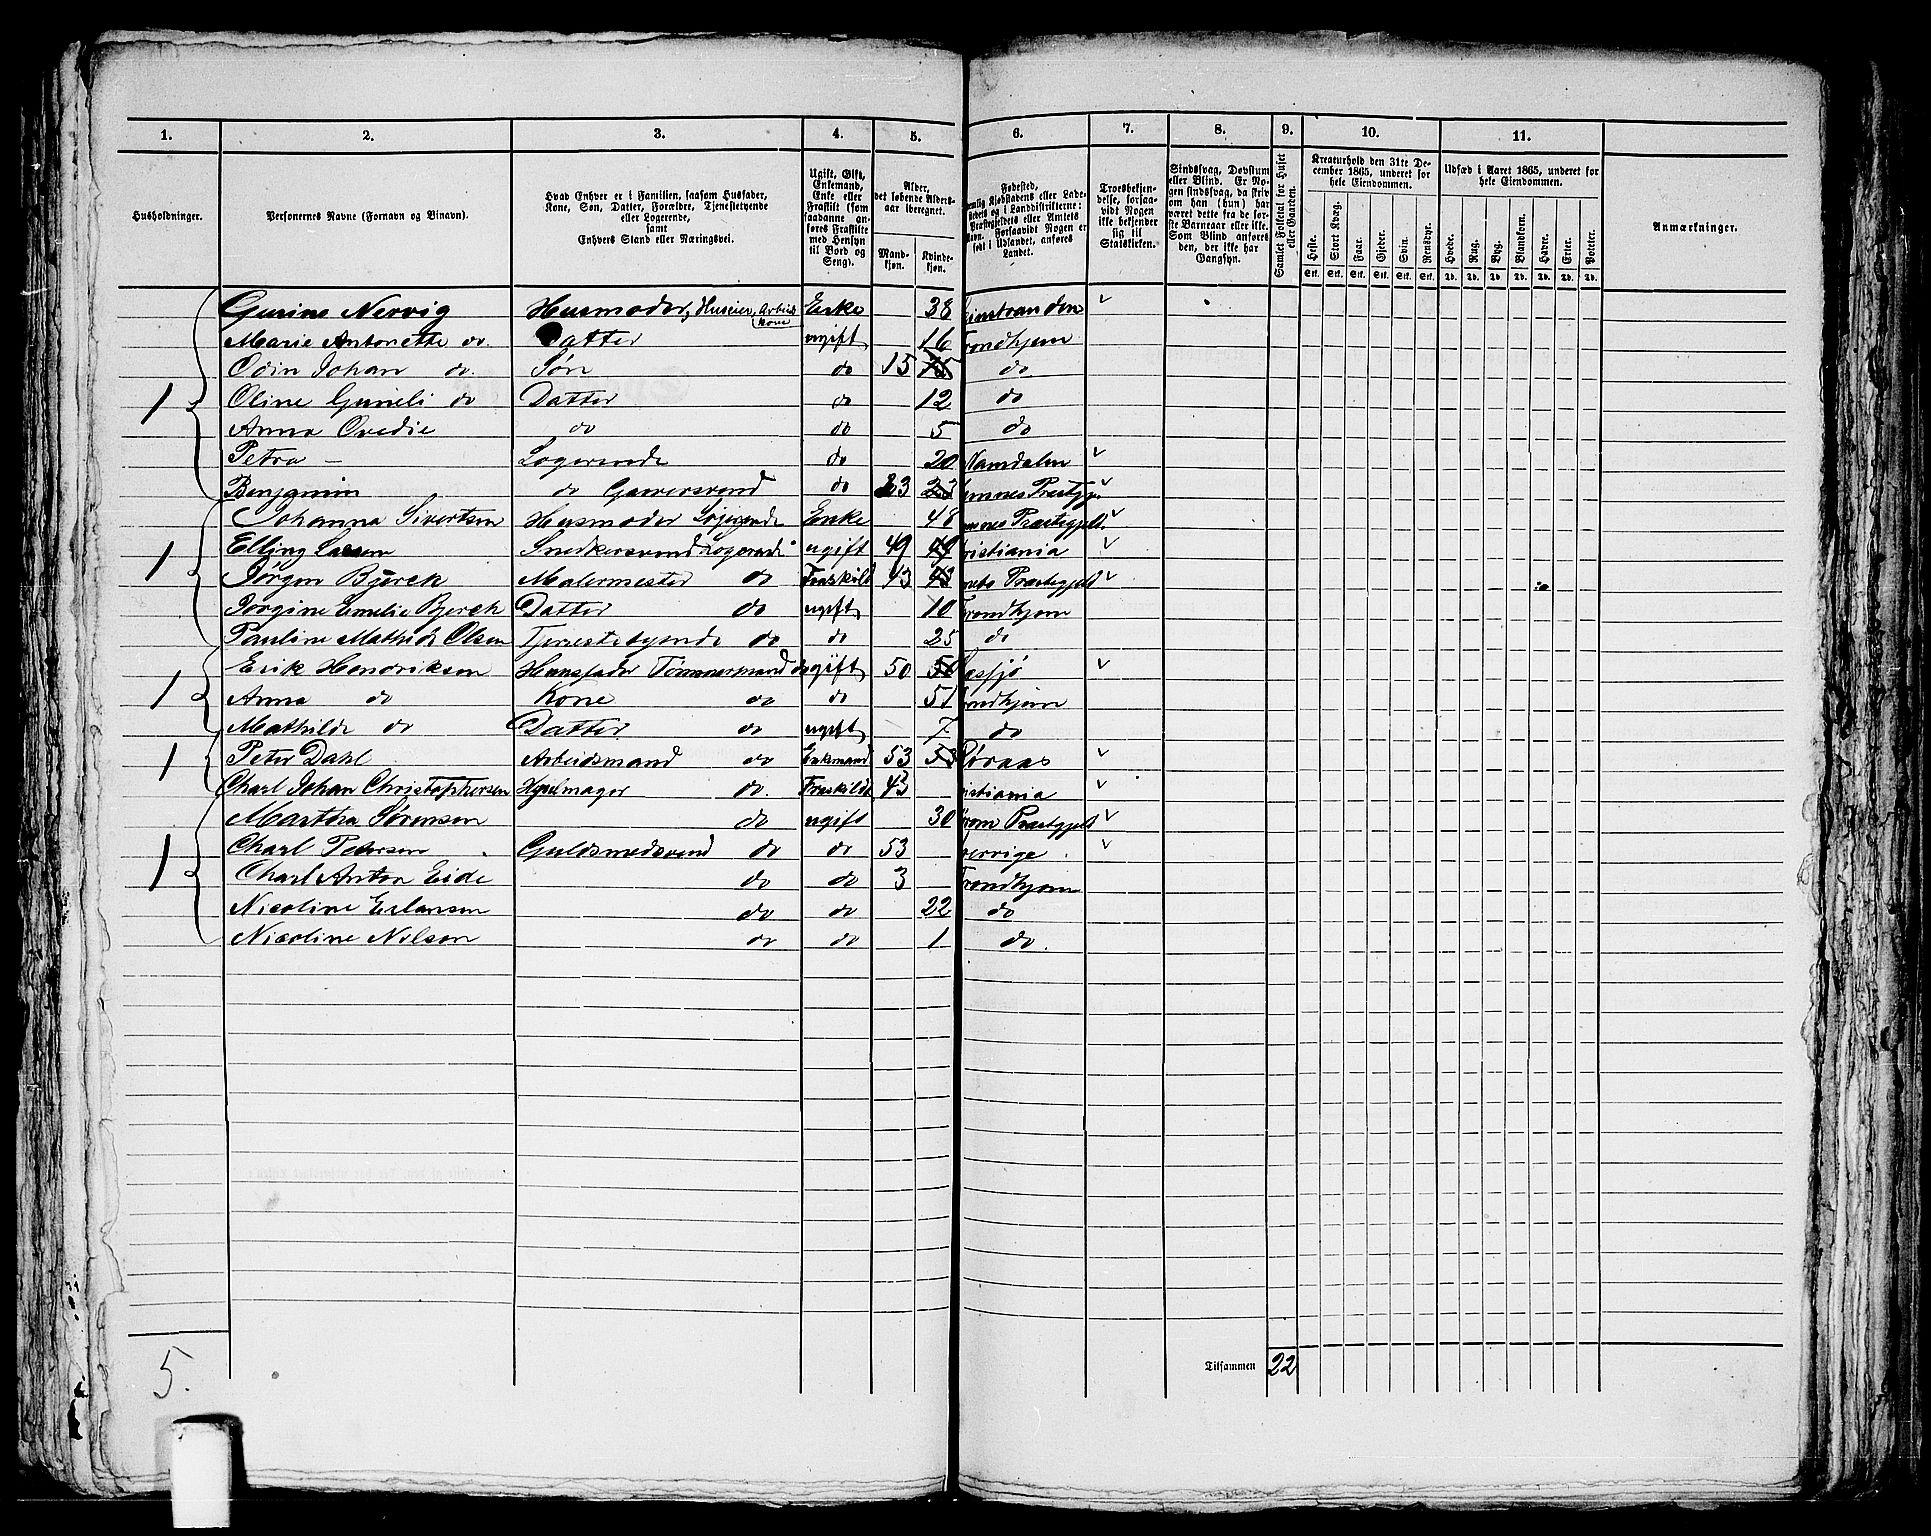 1. 2. 3. 4. 5. 6. 7. 8. 9. 10. 11.
Husholdninger.
Personernes Navne (Fornavn og Binavn).
Hvad Enhver er i Familien, saasom Husfader,
Kone, Søn, Datter, Forældre, Tjenestetyende
eller Logerende,
samt
Enhvers Stand eller Næringsvei.
Ugift, Gift,
Enkemand,
Enke eller
Fraskilt (som
saadanne an-
føres Fraskilte
med Hensyn
til Bord og
Seng).
Alder,
det løbende Alders-
aar iberegnet.
Mand-
kjøn.
Kvinde-
kjøn.
Fødested,
nemlig Kjøbstadens eller Lade-
stedets og i Landdistrikterne:
Præstegjeldets eller Amtets
Navn. Forsaavidt Nogen er
født i Udlandet, anføres
Landet.
Troesbekjen-
delse, forsaa-
vidt Nogen
ikke bekjender
sig til
Statskirken.
Sindssvag, Døvstum
eller Blind. Er No-
gen sindssvag, da skriv
om han (hun) har
været dette fra de før-
ste Barneaar eller ikke.
Som Blind anføres
den, der ikke har
Gangsyn.
Samlet Folketal for Huset
eller Gaarden.
Kreaturhold den 31te De-
cember 1865, underet for
hele Eiendommen.
Heste. Stort Kvæg. Faar. Gjeder. Svin. Rensdyr.
Stk. Stk. Stk. Stk. Stk. Stk.
Udsæd i Aaret 1865, underet for
hele Eiendommen.
Hvede. Rug. Byg. Blandkorn. Havre. Erter. Poteter.
Td. Td. Td. Td. Td. Td. Td.
Anmærkninger.
Gurine Nervig Husmoder, Huseier, Arbeids kone Enke 38 einstranden
Marie Antonette do. Datter ugift 16 Trondhjem
Odin Johan do. Søn do 15 15 do
1 Oline Gurieli do Datter do 12 do
Anna Ovedie do do 5 do
Petra – Logerende do 20 Namdalen
Benjamin do Garversvend do 23 23 emnes Præstgj.
Johanna Sivertsen Husmoder Logerende Enke 48 emnes Præstegjeld
1 Elling Larsen Snedkersvend Logerende ugift 49 49 ristiania
Jørgen Bjerck Malermester do Fraskild 43 43 Præstegjeld
Jørgine Emelie Bjerck Datter do ugift 10 Trondhjem
Pauline Mathilde Olsen Tjenestetyende do do 25 do
Erik Hendriksen Huusfader Tømmermand do gift 50 50
1 Anna do Kone do do 51 rondhjem
Mathilde do Datter do ugift 7 do
1 Peter Dahl Arbeidsmand do Enkemand 53 53 Røraas
Charl Johan Christophersen Hjulmager do. Fraskildt 43 ristiania
Martha Sørensen do ugift 30 Præstegjeld
1 Charl Petersen Guldsmedsvend do do 53 verrige
Charl Anton Eide do do 3 Trondhjem
Nicoline Erlansen do do 22 do
Nicoline Nilsen do do 1 do.
Tilsammen 22
5.